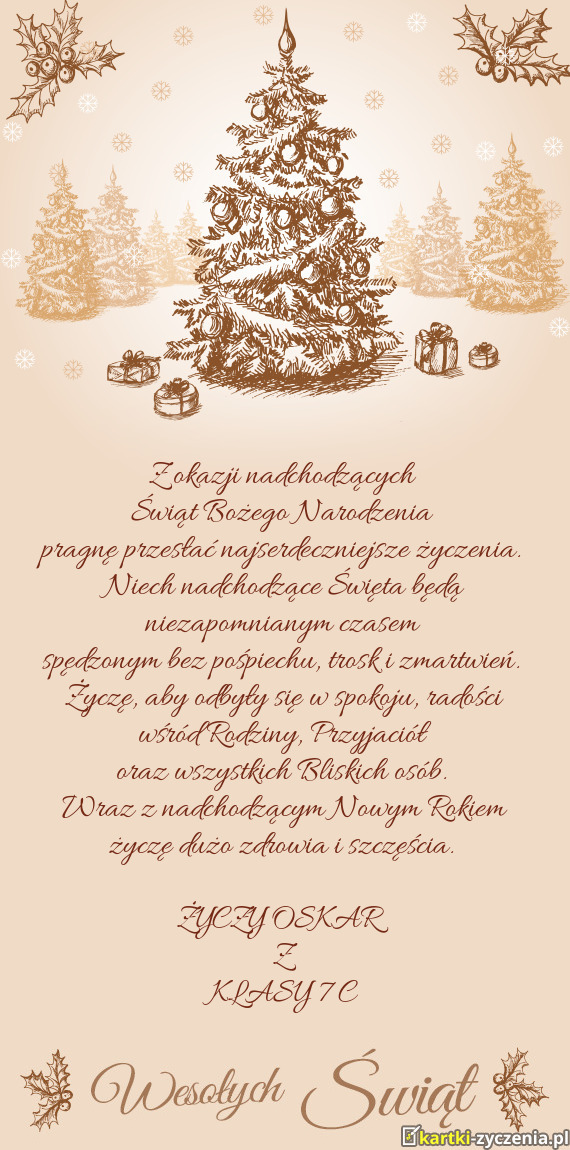 Z okazji nadchodzących
Świąt Bożego Narodzenia
pragnę przesłać najserdeczniejsze życzenia.
Niech nadchodzące Święta będą
niezapomnianym czasem
spędzonym bez pośpiechu, trosk i zmartwień.
Życzę, aby odbyły się w spokoju, radości
wśród Rodziny, Przyjaciół
oraz wszystkich Bliskich osób.
Wraz z nadchodzącym Nowym Rokiem
życzę dużo zdrowia i szczęścia.
ŻYCZY OSKAR
Z
KLASY 7 C
Wesołych Świąt
kartki-zyczenia.pl